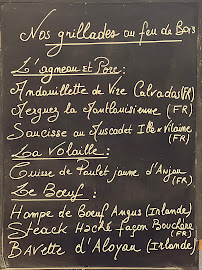 Nos grillades au feu de Bois
L'agneau et Porc :
Andouillette de Vire Calvados (FR)
Merguez la Montlouisienne (FR)
Saucisse au Muscadet Ille & Vilaine (FR)
La Volaille :
Cuisse de Poulet jaune d'Anjou (FR)
Le Bœuf :
Hampe de Bœuf Angus (Irlande)
Steack Haché façon Bouchère (FR)
Bavette d'Aloyau (Irlande)